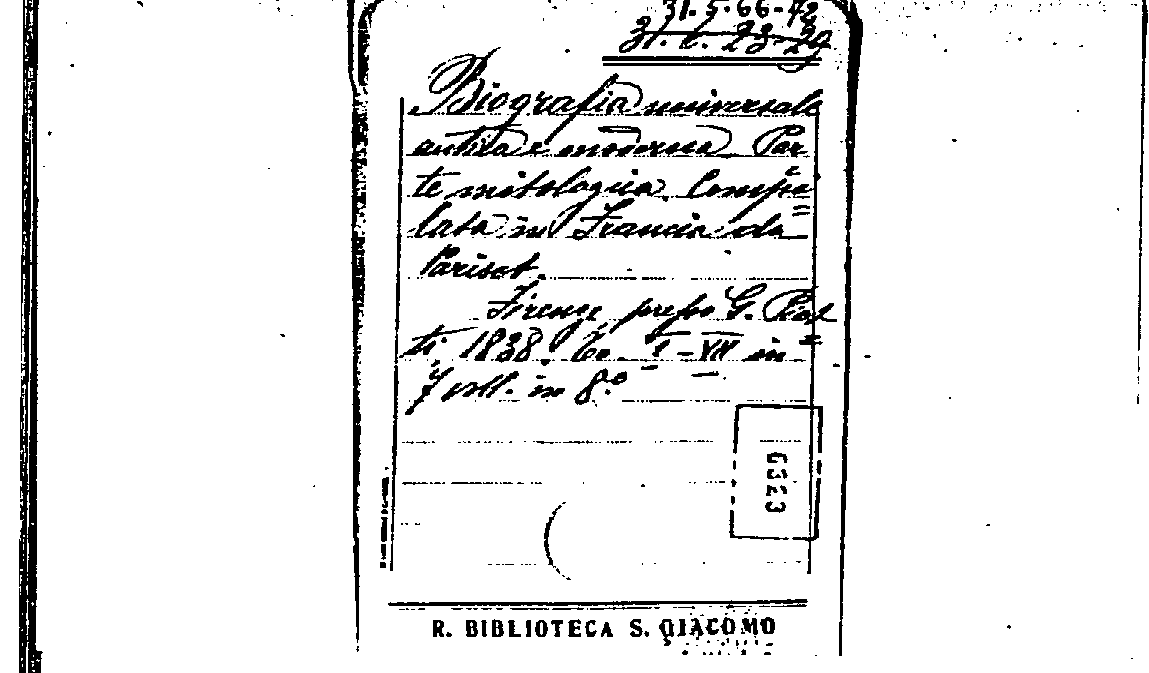 31.5.66-72
31.6.23-29
Biografia universale
antica e moderna. Par
te mitologica. Compi=
lata in Francia da
Parisot.
Firenze presso G. Piat=
ti 1838. To. I-VII in
7 voll. in 8.º
6323
R. BIBLIOTECA S. GIACOMO